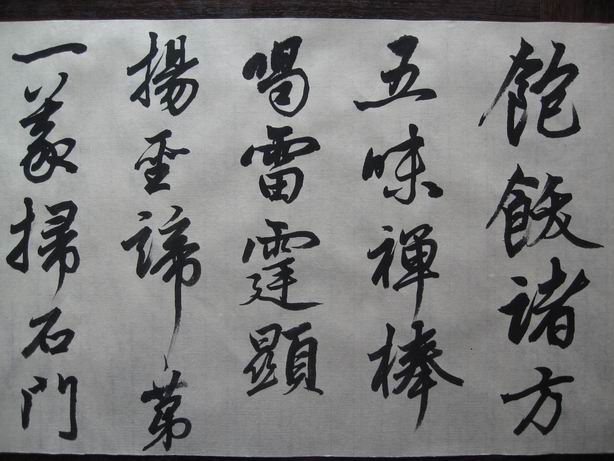 飽餕諸方
五味禪棒
喝雷霆顯
揚聖諦第
一義掃石門